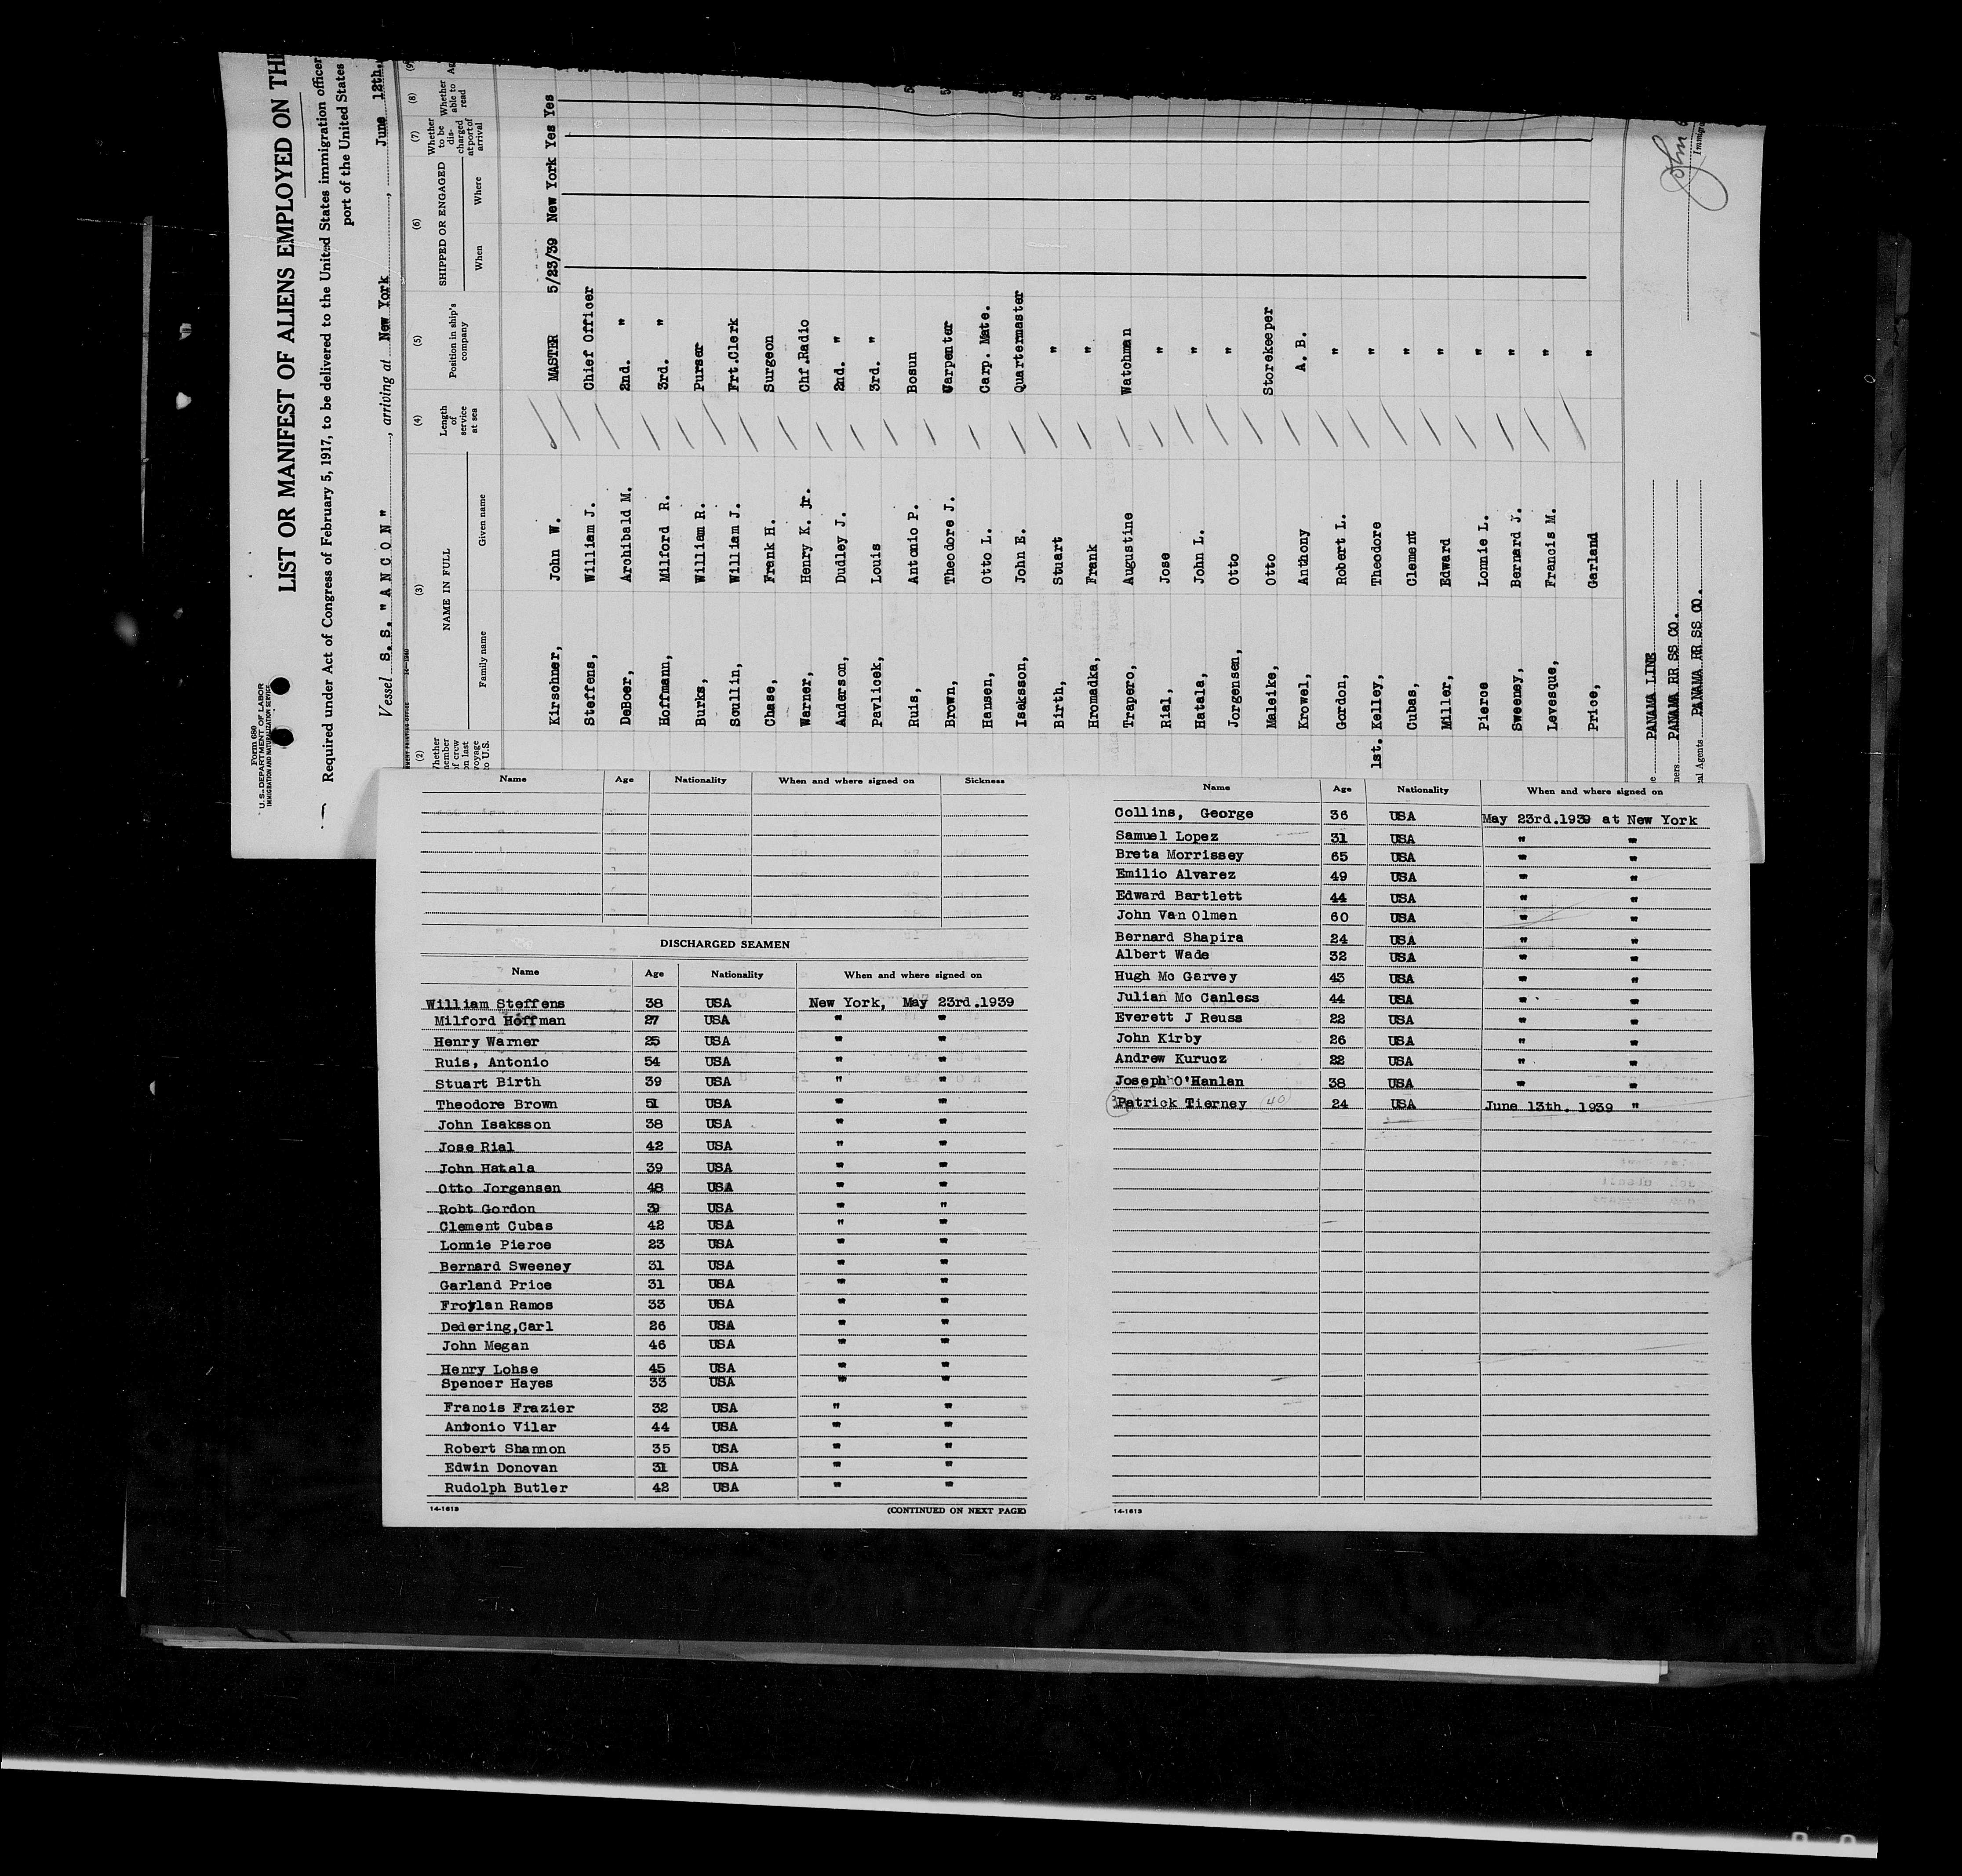 Form 680
U. S. DEPARTMENT OF LABOR
IMMIGRATION AND NATURALIZATION SERVICE
LIST OR MANIFEST OF ALIENS EMPLOYED ON THE
Required under Act of Congress of February 5, 1917, to be delivered to the United States immigration officer
port of the United States
Vessel S. S. "ANCON", arriving at New York, June 12th,
(2) (3) (4) (5) (6) (7) (8) (9)
NAME IN FULL Length of service at sea Position in ship's company SHIPPED OR ENGAGED Whether to be discharged at port of arrival Whether able to read
Family name Given name When Where
Kirschner, John W. MASTER 5/23/39 New York Yes Yes
Steffens, William J. Chief Officer
DeBoer, Archibald M. 2nd. "
Hoffmann, Milford R. 3rd. "
Burks, William R. Purser
Scullin, William J. Frt.Clerk
Chase, Frank H. Surgeon
Warner, Henry K. jr. Chf.Radio
Anderson, Dudley J. 2nd. "
Pavlicek, Louis 3rd. "
Ruis, Antonio P. Bosun
Brown, Theodore J. Carpenter
Hansen, Otto L. Carp. Mate.
Isaksson, John E. Quartermaster
Birth, Stuart "
Hromadka, Frank "
Trapero, Augustine Watchman
Rial, Jose "
Hatala, John L. "
Jorgensen, Otto "
Maleike, Otto Storekeeper
Krowel, Anthony A. B.
Gordon, Robert L. "
1st. Kelley, Theodore "
Cubas, Clement "
Miller, Edward "
Pierce Lonnie L. "
Sweeney, Bernard J. "
Levesque, Francis M. "
Price, Garland "
PANAMA LINE
PANAMA RR SS CO.
Agents PANAMA RR SS CO.
John
Name Age Nationality When and where signed on Sickness
DISCHARGED SEAMEN
Name Age Nationality When and where signed on
William Steffens 38 USA New York, May 23rd.1939
Milford Hoffman 27 USA " "
Henry Warner 25 USA " "
Ruis, Antonio 54 USA " "
Stuart Birth 39 USA " "
Theodore Brown 51 USA " "
John Isaksson 38 USA " "
Jose Rial 42 USA " "
John Hatala 39 USA " "
Otto Jorgensen 48 USA " "
Robt Gordon 39 USA " "
Clement Cubas 42 USA " "
Lonnie Pierce 23 USA " "
Bernard Sweeney 31 USA " "
Garland Price 31 USA " "
Froylan Ramos 33 USA " "
Dedering,Carl 26 USA " "
John Megan 46 USA " "
Henry Lohse 45 USA " "
Spencer Hayes 33 USA " "
Francis Frazier 32 USA " "
Antonio Vilar 44 USA " "
Robert Shannon 35 USA " "
Edwin Donovan 31 USA " "
Rudolph Butler 42 USA " "
14-1613 (CONTINUED ON NEXT PAGE)
Name Age Nationality When and where signed on
Collins, George 36 USA May 23rd.1939 at New York
Samuel Lopez 31 USA " "
Breta Morrissey 65 USA " "
Emilio Alvarez 49 USA " "
Edward Bartlett 44 USA " "
John Van Olmen 60 USA " "
Bernard Shapira 24 USA " "
Albert Wade 32 USA " "
Hugh Mc Garvey 43 USA " "
Julian Mc Canless 44 USA " "
Everett J Reuss 22 USA " "
John Kirby 26 USA " "
Andrew Kurucz 22 USA " "
Joseph O'Hanlan 38 USA " "
Patrick Tierney (40) 24 USA June 13th. 1939 "
14-1613